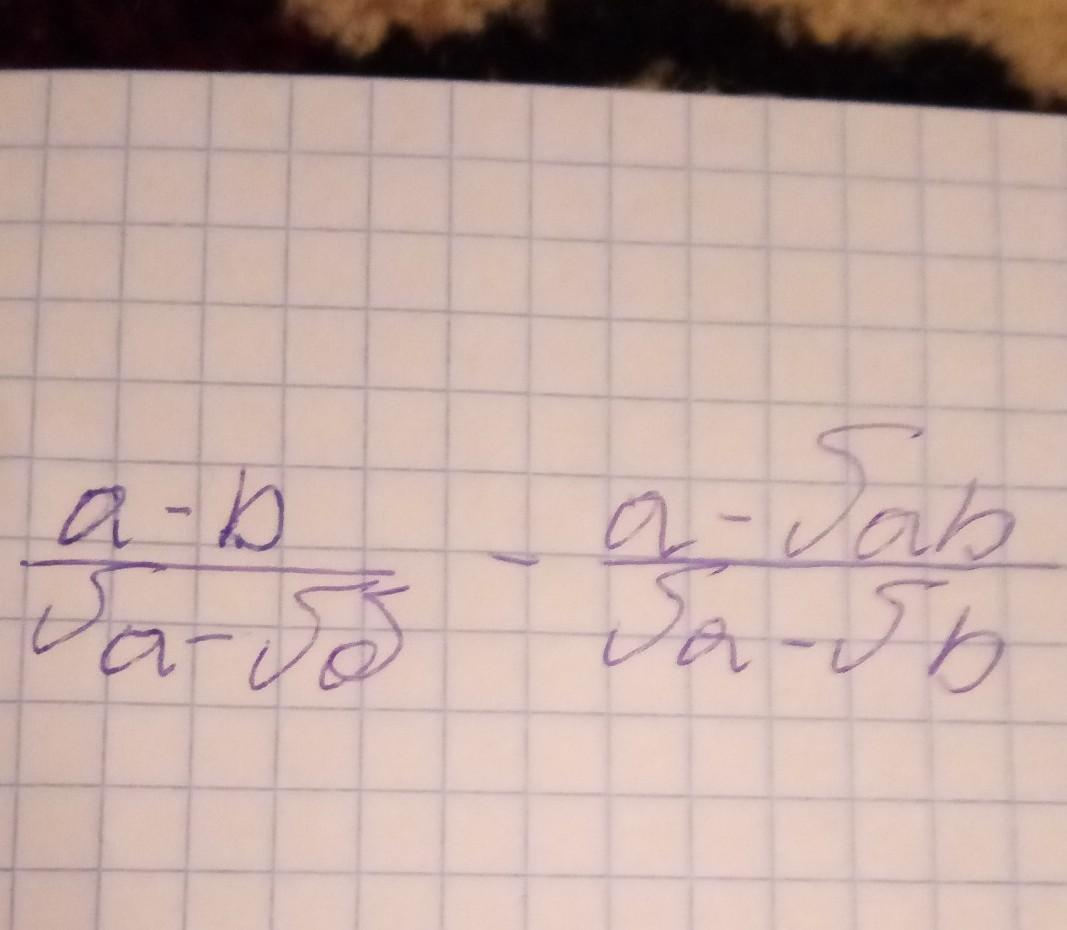 a-b / √a-√b - a-√ab / √a-√b